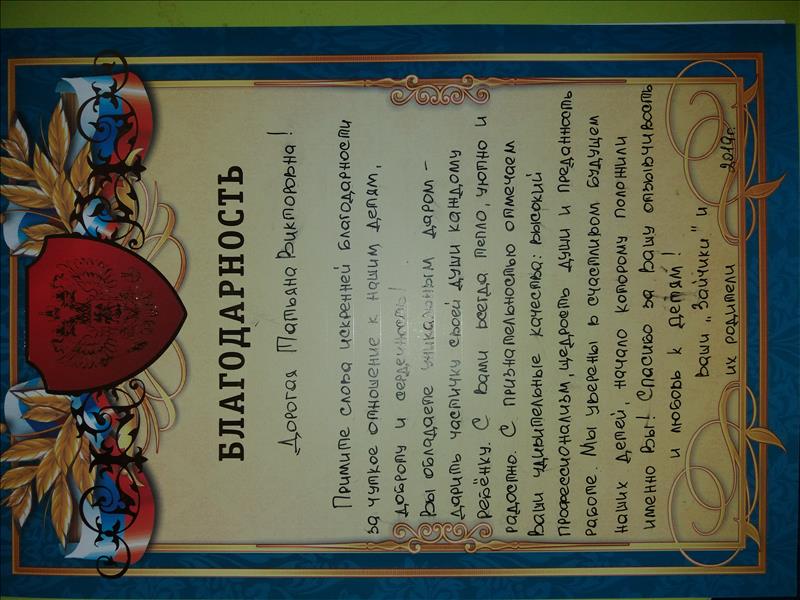 БЛАГОДАРНОСТЬ
Дорогая Татьяна Викторовна!
Примите слова искренней благодарности
за чуткое отношение к нашим детям,
доброту и сердечность!
Вы обладаете уникальным даром -
дарить частичку своей души каждому
ребёнку. С Вами всегда тепло, уютно и
радостно. С признательностью отмечаем
Ваши удивительные качества: высокий
профессионализм, щедрость души и преданность
работе. Мы уверены в счастливом будущем
наших детей, начало которому положили
именно Вы! Спасибо за Вашу отзывчивость
и любовь к детям!
Ваши „Зайчики" и
их родители 2019г.